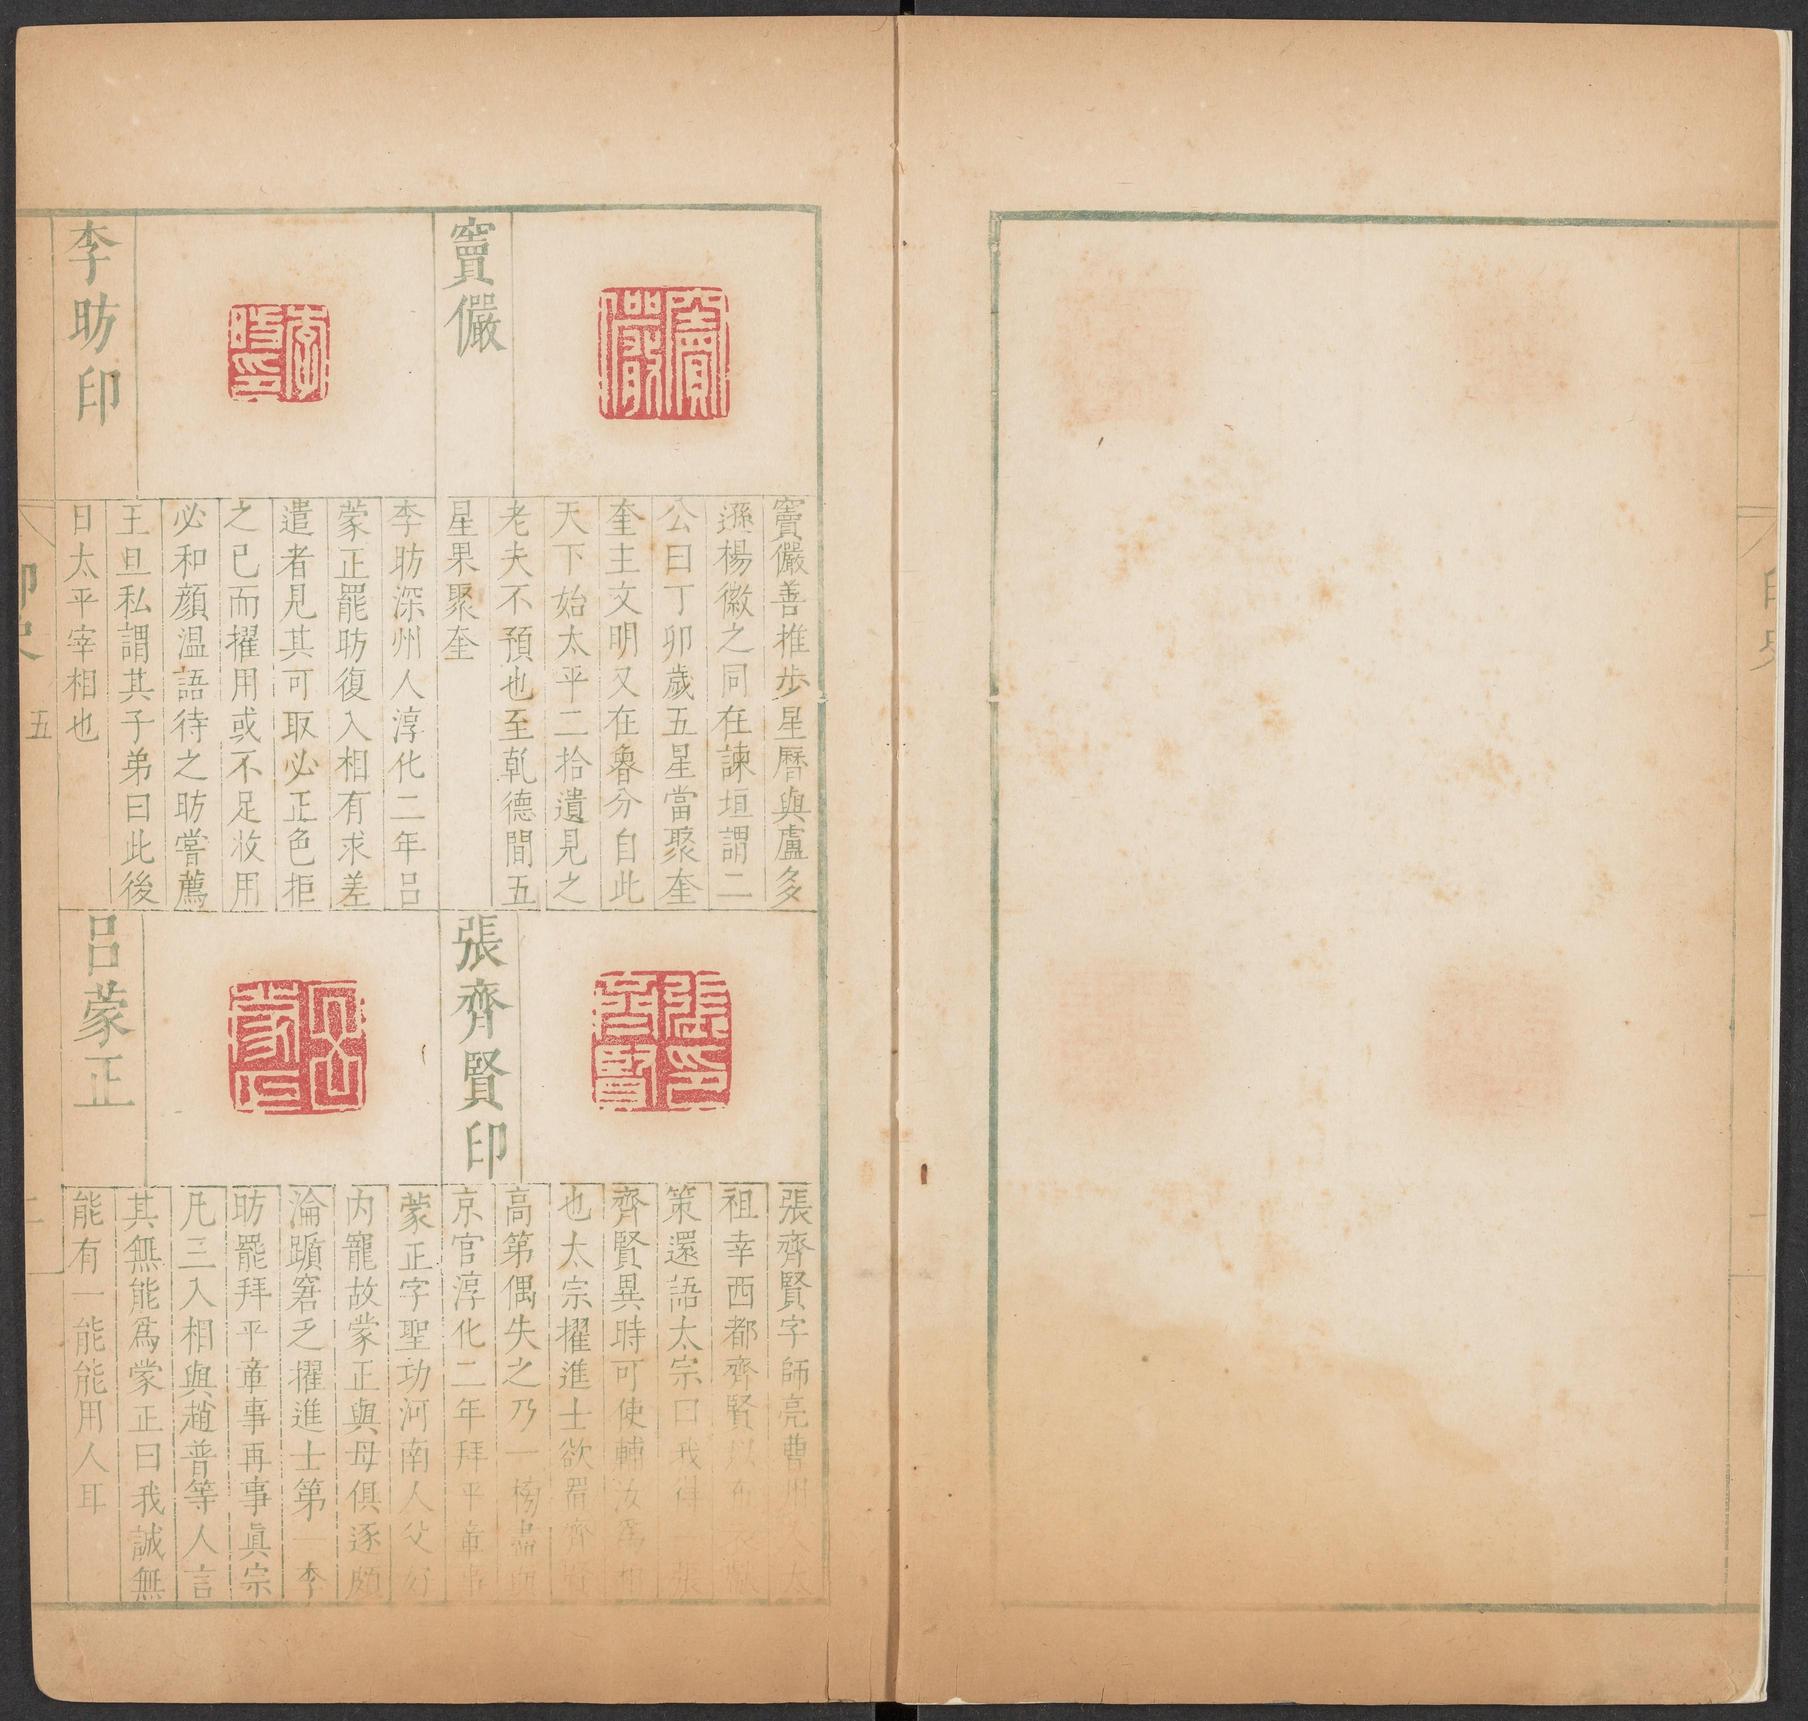 竇儼
竇儼善推步星曆與盧多
遜楊徽之同在諫垣謂二
公曰丁卯歲五星當聚奎
奎主文明又在魯分自此
天下始太平二拾遺見之
老夫不預也至乹德間五
星果聚奎
李昉印
李昉深州人淳化二年呂
蒙正罷昉復入相有求差
遣者見其可取必正色拒
之已而擢用或不足收用
必和顏温語待之昉嘗薦
王旦私謂其子弟曰此後
日太平宰相也
張齊賢印
張齊賢字師亮曹州人太
祖幸西都齊賢以布衣獻
策還語太宗曰我得一張
齊賢異時可使輔汝為相
也太宗擢進士欲置齊賢
高第偶失之乃一榜盡與
京官淳化二年拜平章事
呂蒙正
蒙正字聖功河南人父好
内寵故蒙正與母俱逐頗
淪躓窘乏擢進士第一李
昉罷拜平章事再事真宗
凡三入相與趙普等人言
其無能為蒙正曰我誠無
能有一能能用人耳
印史
五
二